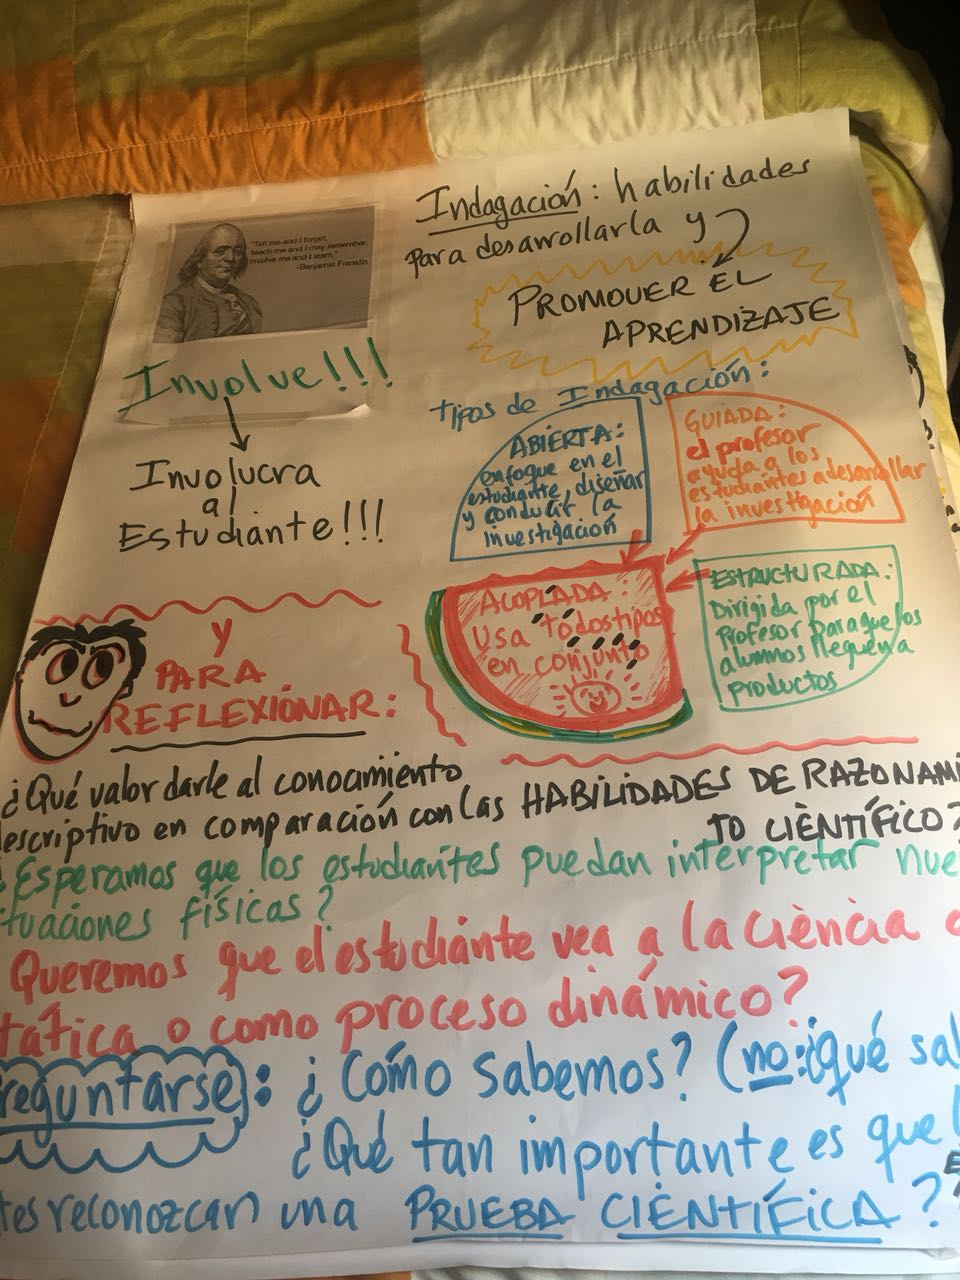 "Tell me and I forget,
teach me and I may remember,
involve me and I learn."
-Benjamin Franklin
Involve!!!
Involucra
al
Estudiante!!!
Indagación: habilidades
para desarrollarla y
PROMOVER EL
APRENDIZAJE
tipos de Indagación:
ABIERTA:
enfoque en el
estudiante, diseñar
y conducir la
investigación
GUIADA:
el profesor
ayuda a los
estudiantes a desarrollar
la investigación
ACOPLADA:
Usa todos tipos
en conjunto
ESTRUCTURADA:
Dirigida por el
Profesor para que los
alumnos lleguen a
productos
Y
PARA
REFLEXIÓNAR:
¿Qué valor darle al conocimiento
descriptivo en comparación con las HABILIDADES DE RAZONAMI
TO CIENTÍFICO?
¿Esperamos que los estudiantes puedan interpretar nue
ituaciones físicas?
Queremos que el estudiante vea a la ciència
tática o como proceso dinámico?
reguntarse: ¿Cómo sabemos? (no: ¿qué sab
¿Qué tan importante es que l
tes reconozcan una PRUEBA CIENTÍFICA?